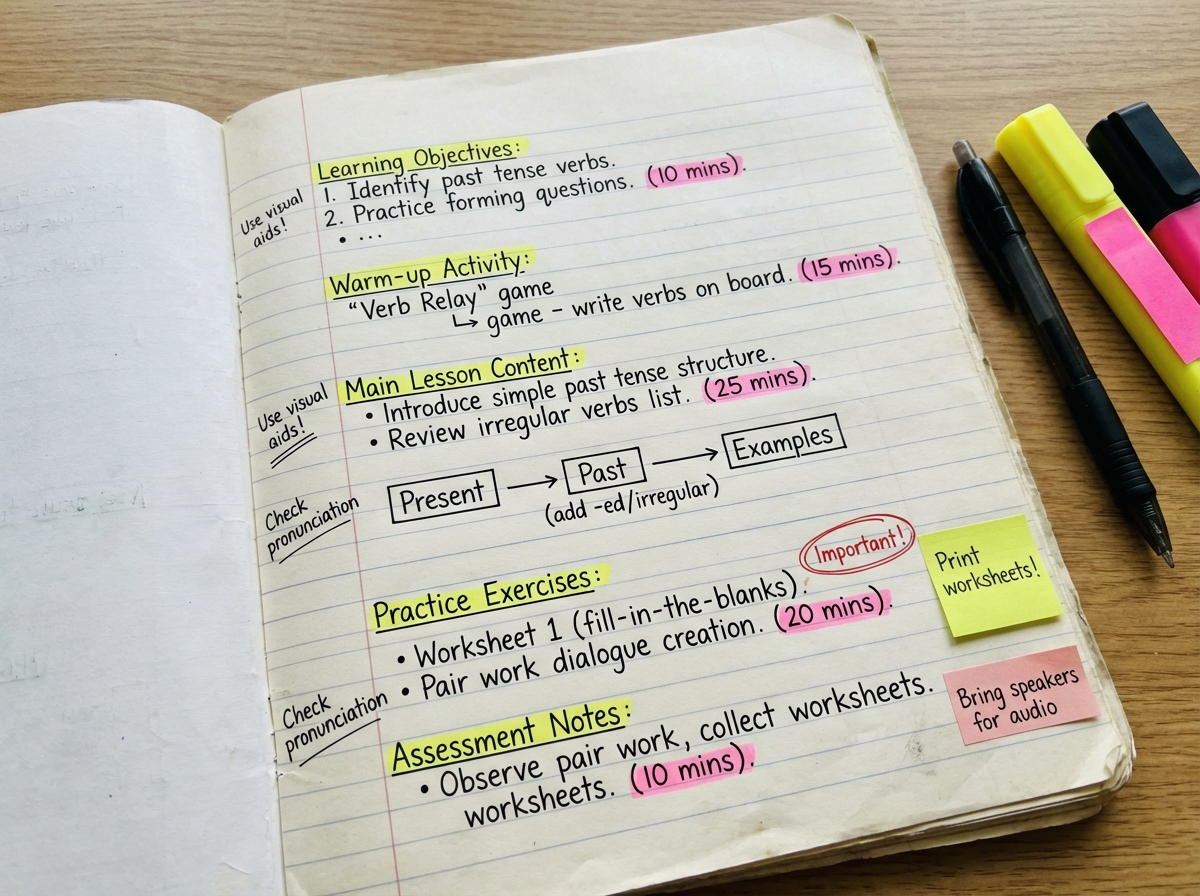 Learning Objectives:
1. Identify past tense verbs.
2. Practice forming questions. (10 mins).
• ...
Use visual
aids!
Warm-up Activity:
“Verb Relay” game
↳ game – write verbs on board. (15 mins).
Main Lesson Content:
• Introduce simple past tense structure.
• Review irregular verbs list. (25 mins).
Use visual
aids!
Present → Past → Examples
(add -ed/irregular)
Check
pronunciation
Important!
Practice Exercises:
• Worksheet 1 (fill-in-the-blanks).
• Pair work dialogue creation. (20 mins).
Print
worksheets!
Check
pronunciation
Assessment Notes:
• Observe pair work, collect worksheets.
worksheets. (10 mins).
Bring speakers
for audio